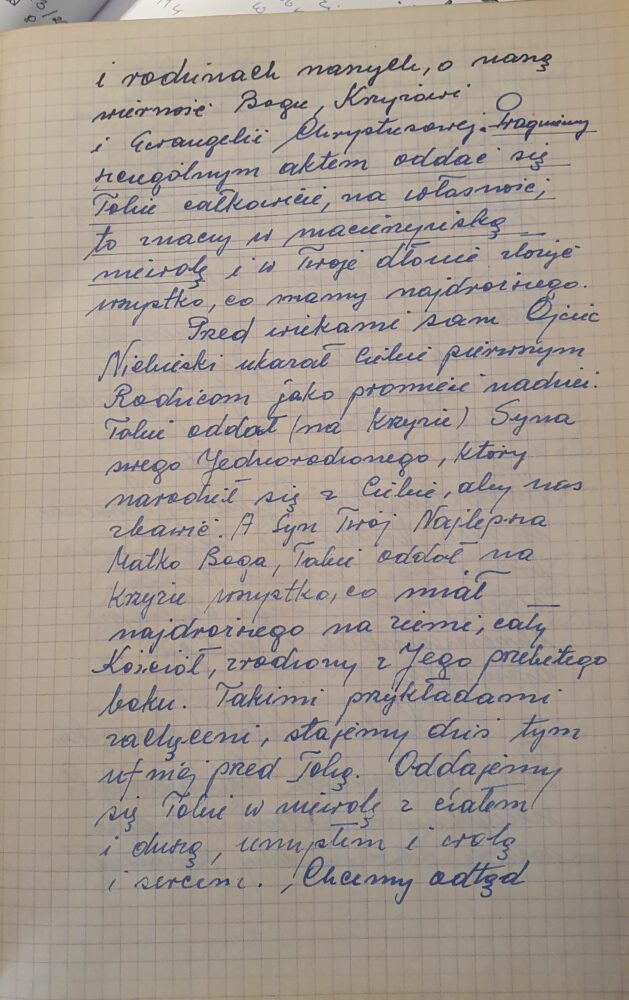 i rodzinach naszych, o naszą
wierność Bogu, Krzyżowi
i Ewangelii Chrystusowej. Pragniemy
szczególnym aktem oddać się
Tobie całkowicie, na własność,
to znaczy w macierzyńską
niewolę i w Twoje dłonie złożyć
wszystko, co mamy najdroższego.
Przed wiekami sam Ojciec
Niebieski ukazał Ciebie pierwszym
Rodzicom jako promień nadziei.
Tobie oddał (na Krzyżu) Syna
swego Jednorodzonego, który
narodził się z Ciebie, aby nas
zbawić. A Syn Twój Najlepsza
Matko Boga, Tobie oddał na
Krzyżu wszystko, co miał
najdroższego na ziemi, cały
Kościół, zrodzony z Jego przebitego
boku. Takimi przykładami
zachęceni, stajemy dziś tym
ufniej przed Tobą. Oddajemy
się Tobie w niewolę z ciałem
i duszą, umysłem i wolą
i sercem. Chcemy odtąd